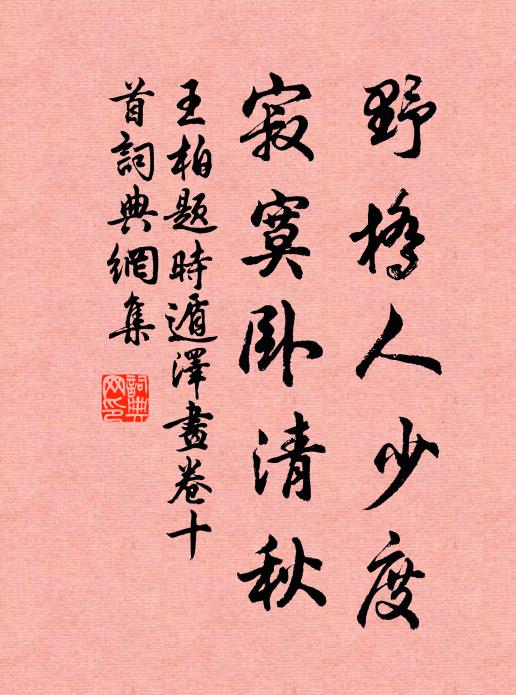 野橋人少度
寂寞臥清秋
王柏題時遁澤畫卷十
首詞典網集
詞典
网印